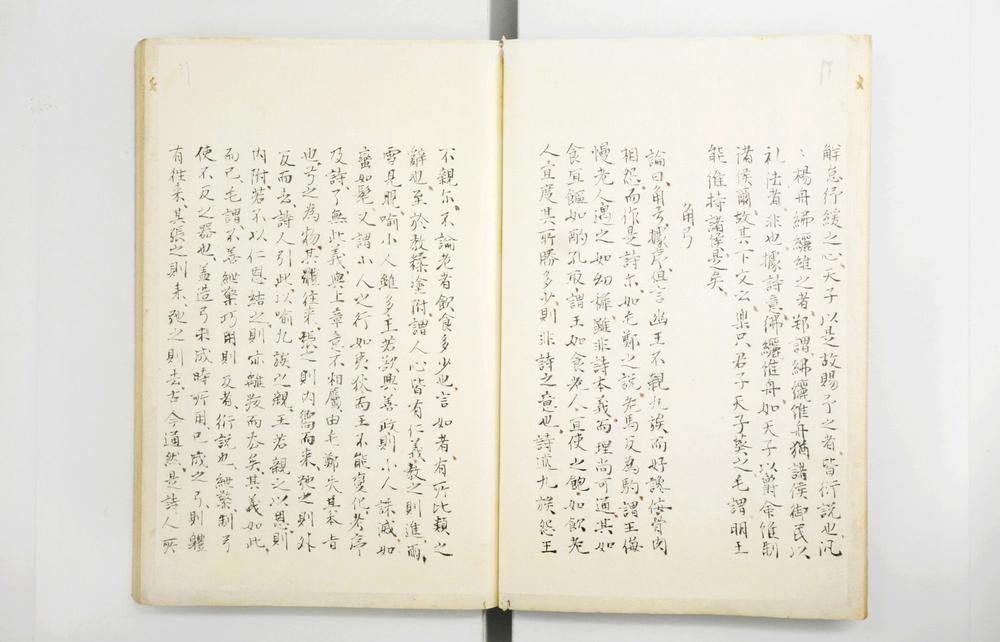 解怠紓緩之心天子以是故賜予之者皆衍說也汎
〻楊舟紼纚維之者鄭謂紼纚惟舟猶諸侯御民以
礼法者非也據詩意紼纚惟舟如天子以爵命惟制
渚侯爾故其下文云樂只君子天子葵之毛謂明王
能惟持諸侯是矣
角弓
論曰角弓據序但言幽王不親九族而好讒侫骨肉
相怨而作是詩尓如毛鄭之說老馬反為駒謂王侮
慢老人遇之如幼稺雖非詩本義而理尚可通其如
食宜饇如酌孔取謂王如食老人宜使之飽如飲老
人宜度其所勝多少則非詩之意也詩述九族怨王
不親尔不論老者飲食多少也言如者有所比類之
辭也至於教猱塗附謂人心皆有仁義教之則進雨
雪見晛喻小人雖多王若欲興善政則小人誅滅如
蠻如髦又謂小人之行如夷狄而王不能變化考序
及詩了無此義與上章意不相屬由毛鄭失其本旨
也弓之為物其體往来張之則内嚮而来弛之則外
反而去詩人引此以喻九族之親王若親之以恩則
内附若不以仁恩結之則亦離叛而去矣其義如此
而已毛謂不善紲檠巧用則反者衍說也紲檠制弓
使不反之器也盖造弓未成時所用已成之弓則體
有往来其張之則来弛之則去古今通然是詩人所